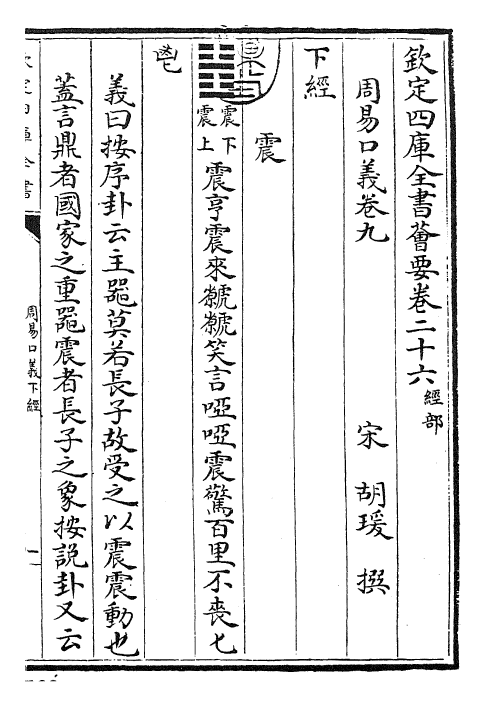 欽定四庫全書薈要卷二十六 經部
周易口義卷九 宋 胡瑗 撰
下經
震
震下
震上
震亨震來虩虩笑言啞啞震驚百里不喪匕
鬯
義曰按序卦云主器莫若長子故受之以震震動也
蓋言鼎者國家之重器震者長子之象按說卦又云
周易口義下經
一